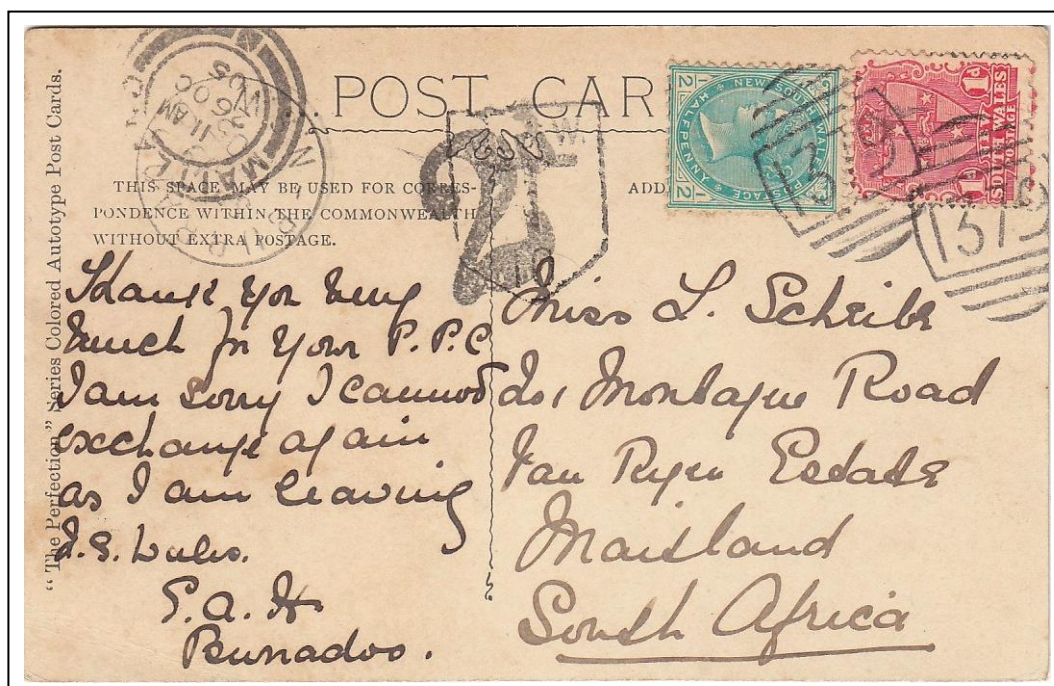 POST CAR
"The Perfection" Series Colored Autotype Post Cards.
THIS SPACE MAY BE USED FOR CORRES-
PONDENCE WITHIN THE COMMONWEALTH
WITHOUT EXTRA POSTAGE.
ADD
NEW SOUTH WALES
POSTAGE
HALFPENNY
1/2 1/2
SOUTH WALES
POSTAGE
1d 1d
1313
2d
11 AM
OC
05
Thank you very
much for your P.P.C
I am sorry I cannot
exchange again
as I am leaving
N.S. Wales.
E.A.H
Burradoo.
Miss L. Scheibe
Montague Road
Van Ryen Estate
Maitland
South Africa